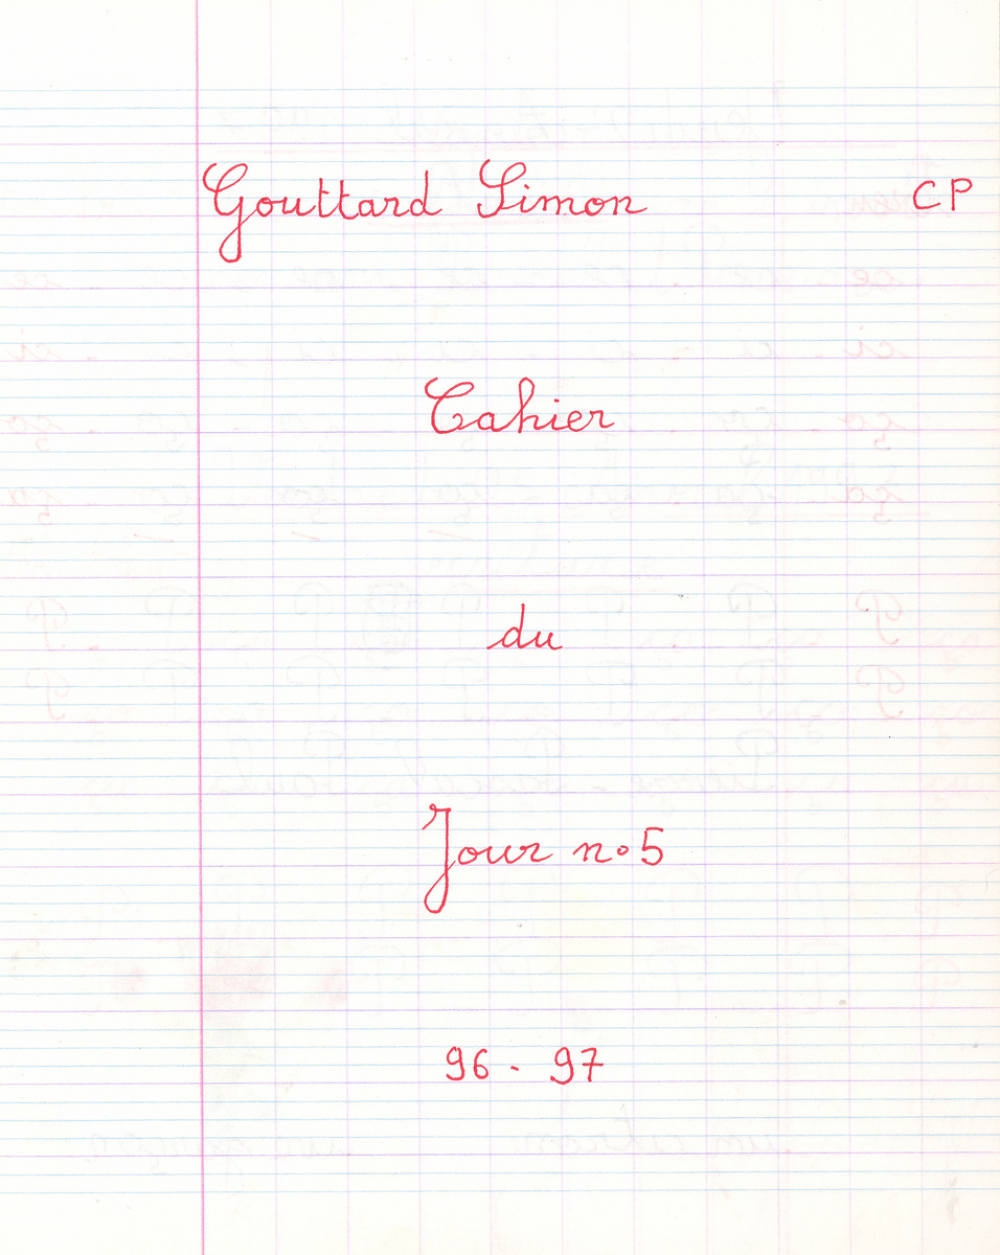 Gouttard Simon CP
Cahier
du
Jour n°5
96 - 97